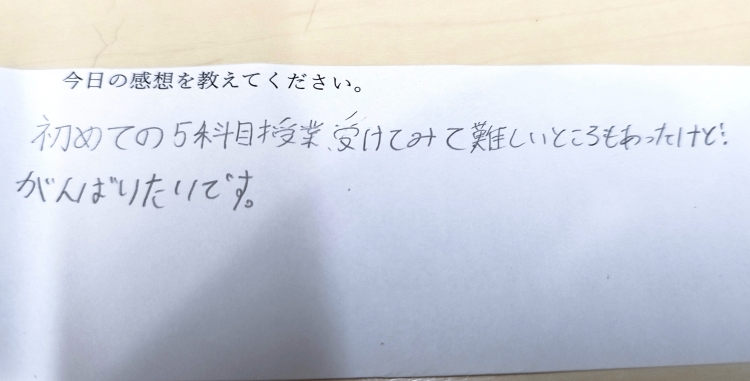 今日の感想を教えてください。
初めての5科目授業、受けてみて難しいところもあったけど
がんばりたいです。